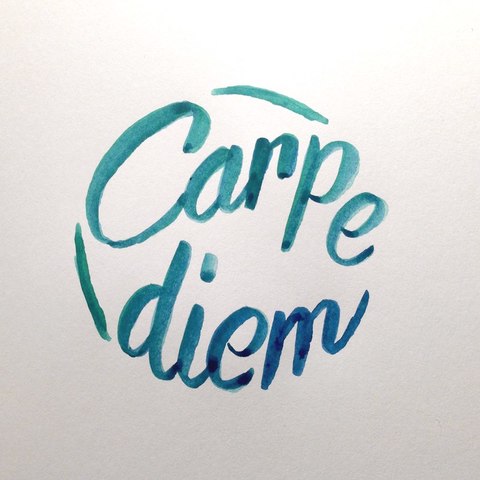 Carpe
diem